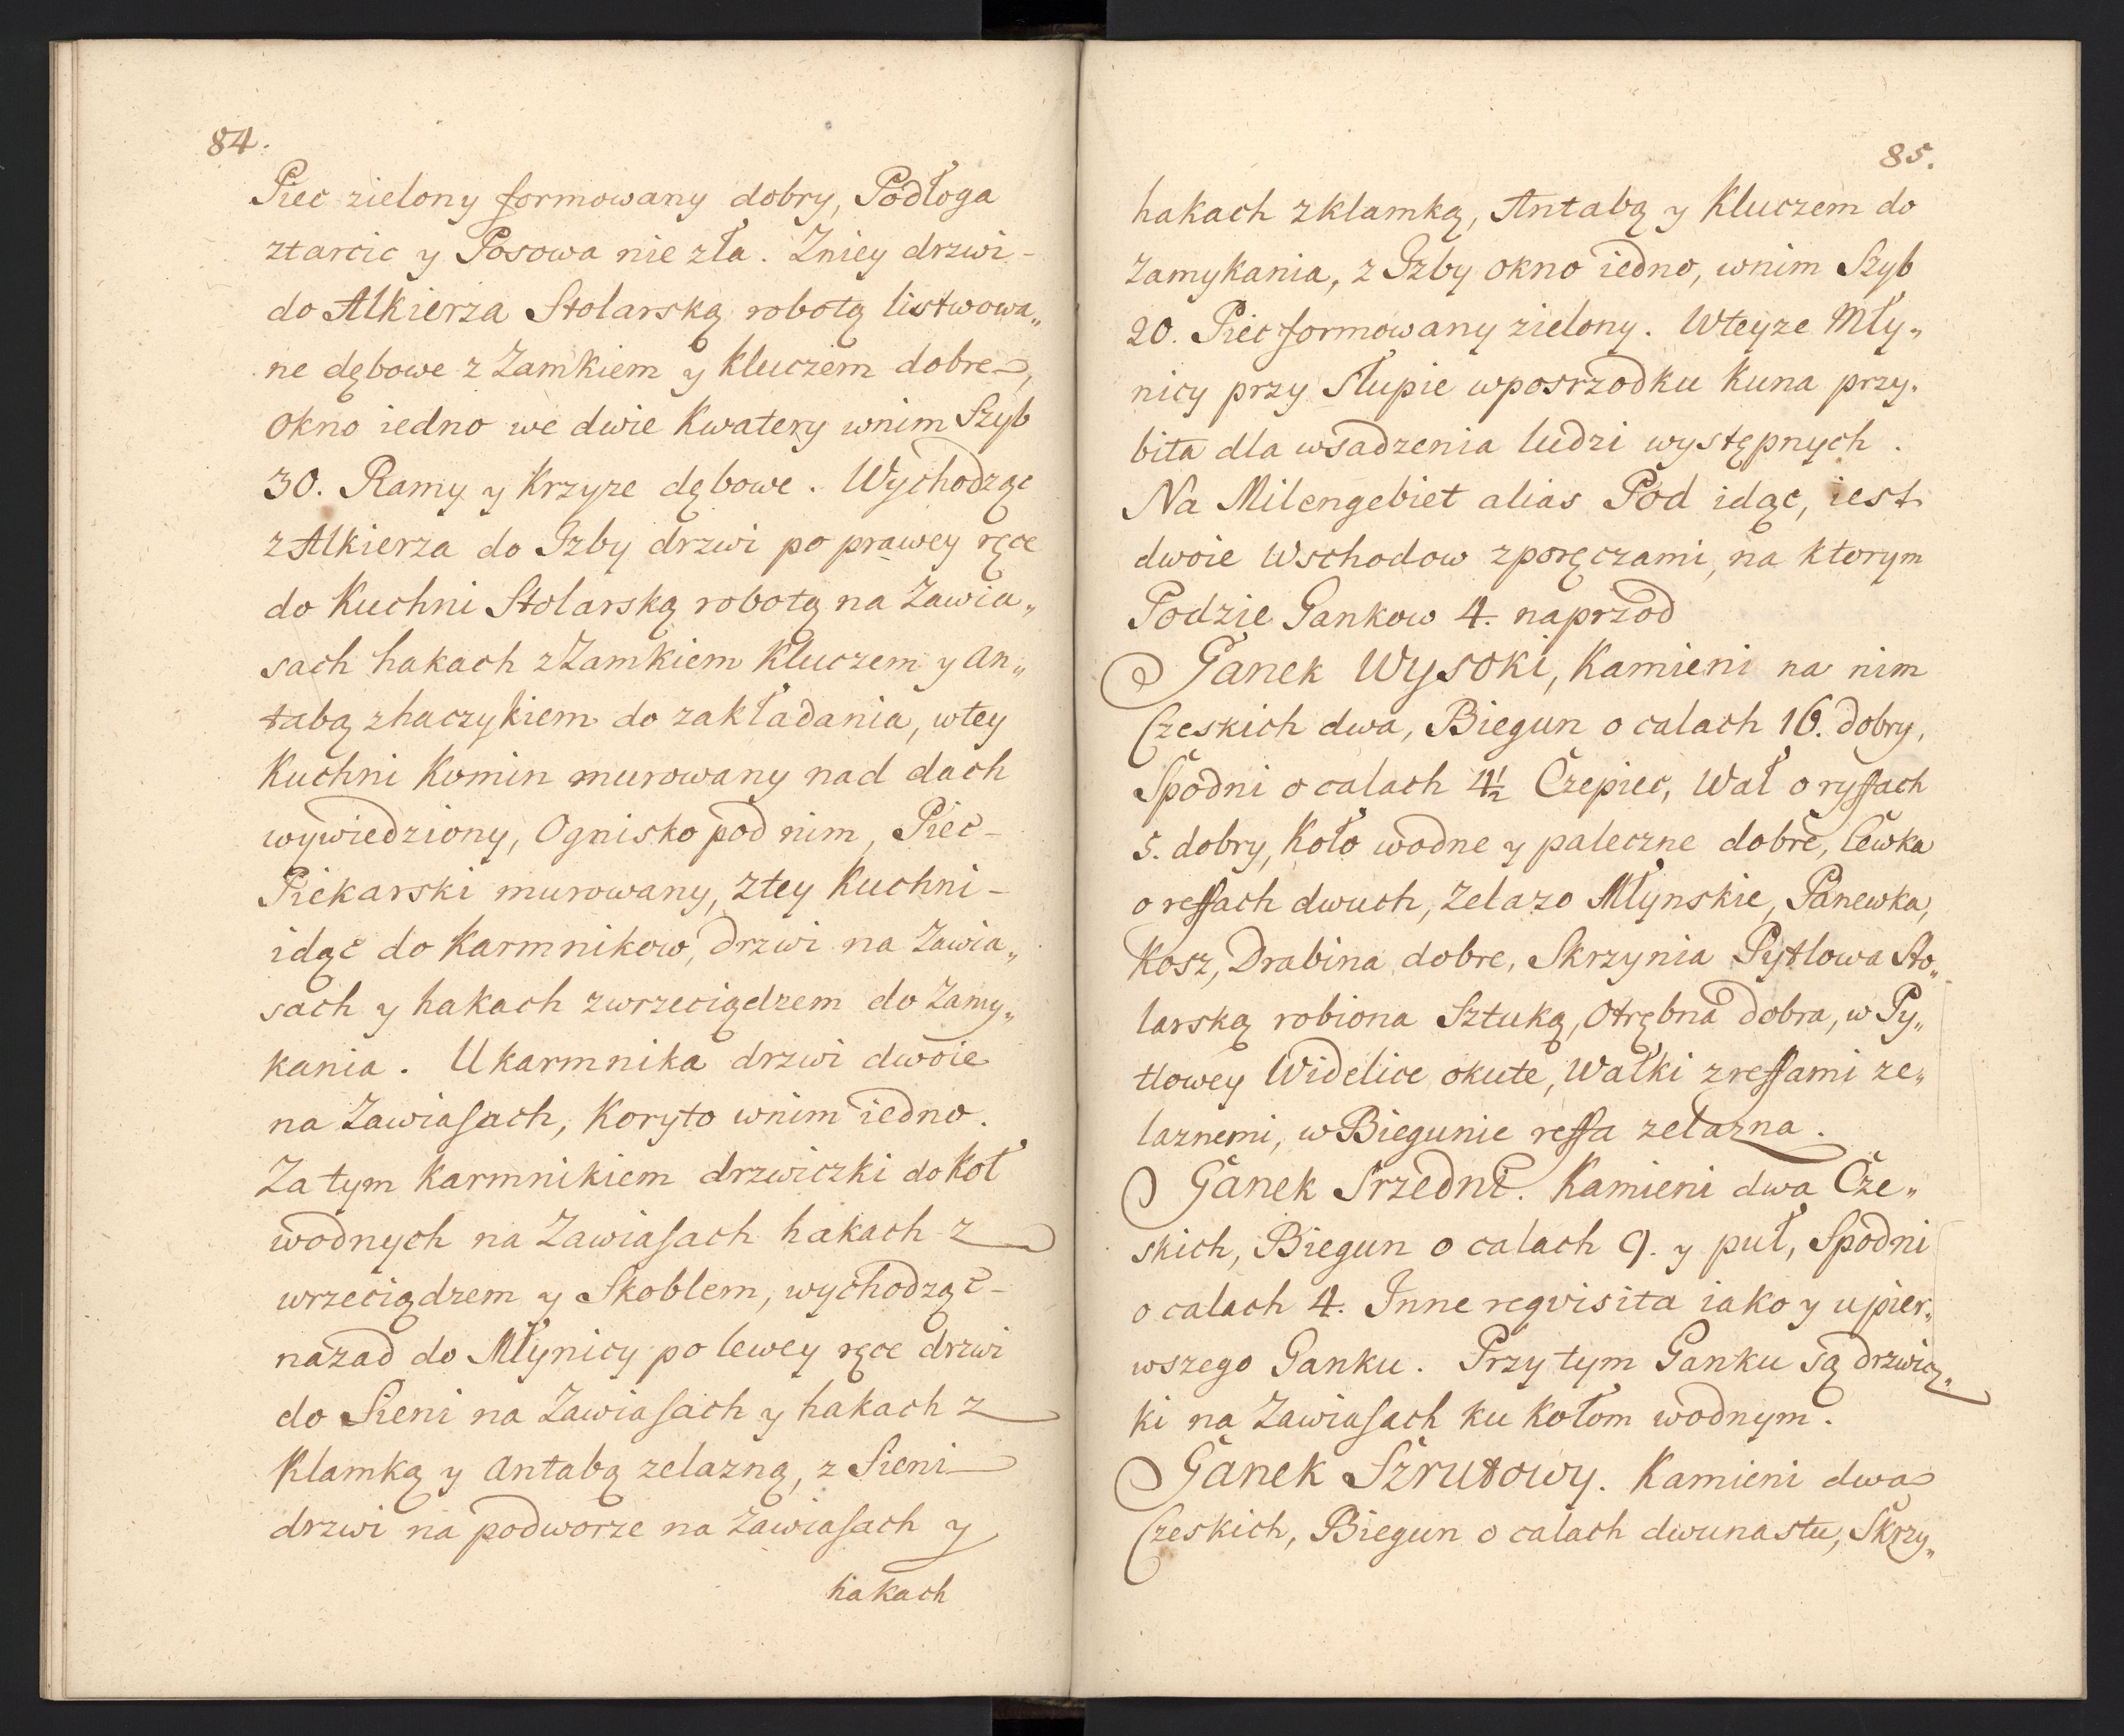 84.
Piec zielony formowany dobry, Podłoga
ztarcic y Posowa nie zła. Zniey drzwi -
do Alkierza Stolarską robotą listwowa„
ne dębowe z Zamkiem y kluczem dobre,
Okno iedno we dwie Kwatery wnim Szyb
30. Ramy y Krzyże dębowe. Wychodząc
z Alkierza do Izby drzwi po prawey ręce
do Kuchni Stolarską robotą na Zawia„
sach hakach z Zamkiem Kluczem y An„
tabą zhaczykiem do zakładania, wtey
Kuchni Komin murowany nad dach
wywiedziony, Ognisko pod nim, Piec -
Piekarski murowany, ztey Kuchni -
idąc do Karmnikow, drzwi na Zawia„
sach y hakach zwrzeciądzem do Zamy„
kania. U karmnika drzwi dwoie
na Zawiasach, Koryto wnim iedno.
Za tym Karmnikiem drzwiczki do Koł
wodnych na Zawiasach hakach z
wrzeciądzem y Skoblem, wychodząc -
nazad do Młynicy po lewey ręce drzwi
do Sieni na Zawiasach y hakach z
Klamką y Antabą zelazną, z Sieni
drzwi na podworze na Zawiasach y
hakach
85.
hakach z klamką, Antabą y Kluczem do
Zamykania, z Izby okno iedno, wnim Szyb
20. Piec formowany zielony. Wteyze Mły„
nicy przy Słupie wposrzodku Kuna przy„
bita dla wsadzenia ludzi występnych.
Na Milengebiet alias Pod idąc, iest
dwoie Wschodow zporęczami, na ktorym
Podzie Gankow 4. naprzod
Ganek Wysoki, Kamieni na nim
Czeskich dwa, Biegun o calach 16. dobry,
Spodni o calach 4½ Czepiec, Wał o ryffach
5. dobry, Koło wodne y paleczne dobre, Cewka
o reffach dwuch, Zelazo Młynskie, Panewka,
Kosz, Drabina dobre, Skrzynia Pytlowa Sto„
larską robiona Sztuką, Otrębna dobra, w Py„
tlowey Widelice okute, Wałki z reffami ze„
laznemi, w Biegunie reffa zelazna.
Ganek Srzedni. Kamieni dwa Cze„
skich, Biegun o calach 9. y puł, Spodni
o calach 4. Inne reqvisita iako y u pier„
wszego Ganku. Przy tym Ganku są drzwicz„
ki na Zawiasach ku Kołom wodnym.
Ganek Szrutowy. Kamieni dwa
Czeskich, Biegun o calach dwunastu, Skrzy„